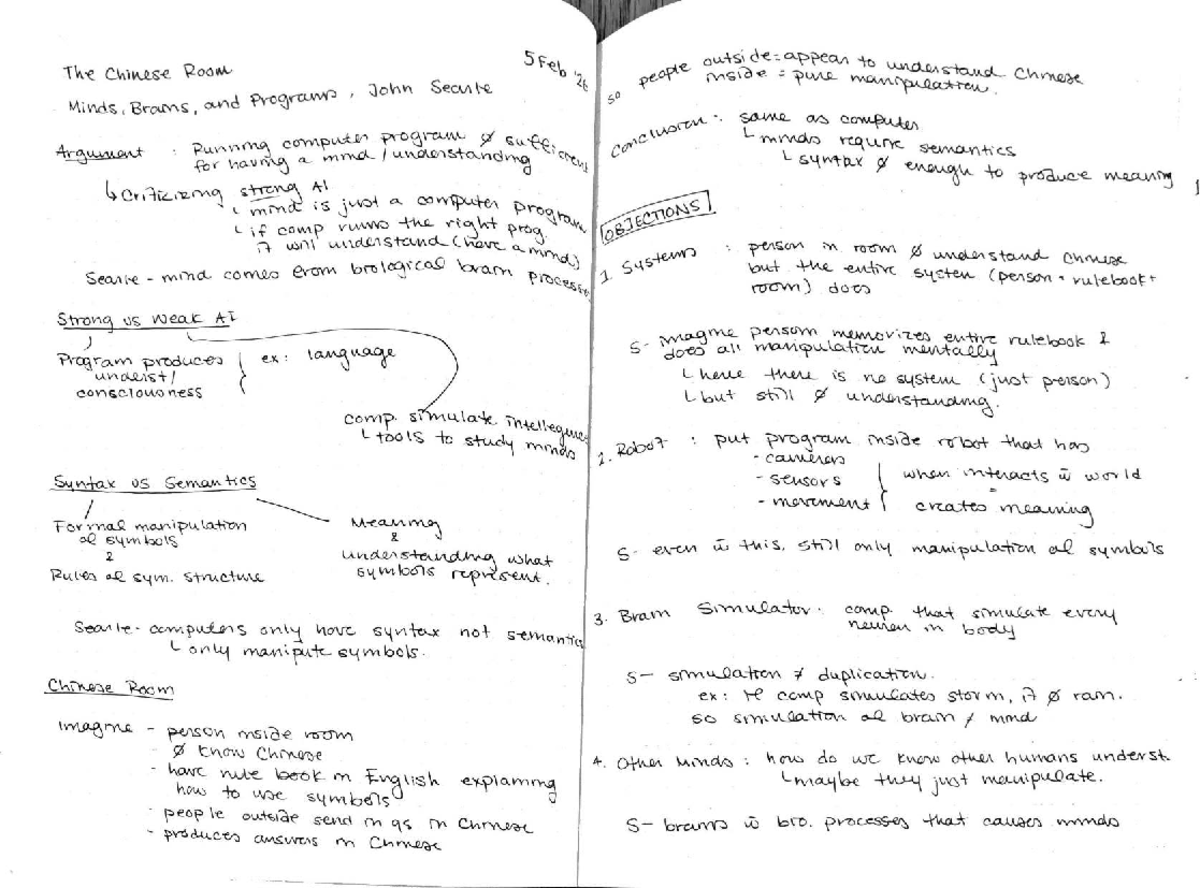 The Chinese Room
5 Feb '26
Minds, Brains, and Programs, John Searle
Argument : Running computer program Ø sufficient
for having a mind / understanding
↳ Criticizing strong AI
└ mind is just a computer program
└ if comp runs the right prog.
it will understand (have a mind)
Searle - mind comes from biological brain processes
Strong vs Weak AI
Program produces
underst/
consciousness
ex: language
comp. simulate intellegence
└ tools to study minds
Syntax vs Semantics
Formal manipulation
of symbols
&
Rules of sym. structure
Meaning
&
understanding what
symbols represent.
Searle - computers only have syntax not semantics
└ only manipute symbols.
Chinese Room
Imagine - person inside room
- Ø know Chinese
- have rule book in English explaining
how to use symbols
- people outside send in qs in Chinese
- produces answers in Chinese
so people outside = appear to understand Chinese
inside = pure manipulation.
Conclusion : same as computer
└ minds require semantics
└ syntax Ø enough to produce meaning
OBJECTIONS
1. Systems : person in room Ø understand Chinese
but the entire system (person + rulebook +
room) does
S- imagine person memorizes entire rulebook &
does all manipulation mentally
└ here there is no system (just person)
└ but still Ø understanding.
2. Robot : put program inside robot that has
- cameras
- sensors
- movement
when interacts w̄ world
=
creates meaning
S- even w̄ this, still only manipulation of symbols
3. Brain Simulator : comp. that simulate every
neuron in body
S- simulation ≠ duplication.
ex: If comp simulates storm, it Ø rain.
so simulation of brain ≠ mind
4. Other Minds : how do we know other humans underst.
└ maybe they just manipulate.
S- brains w̄ bio. processes that causes minds